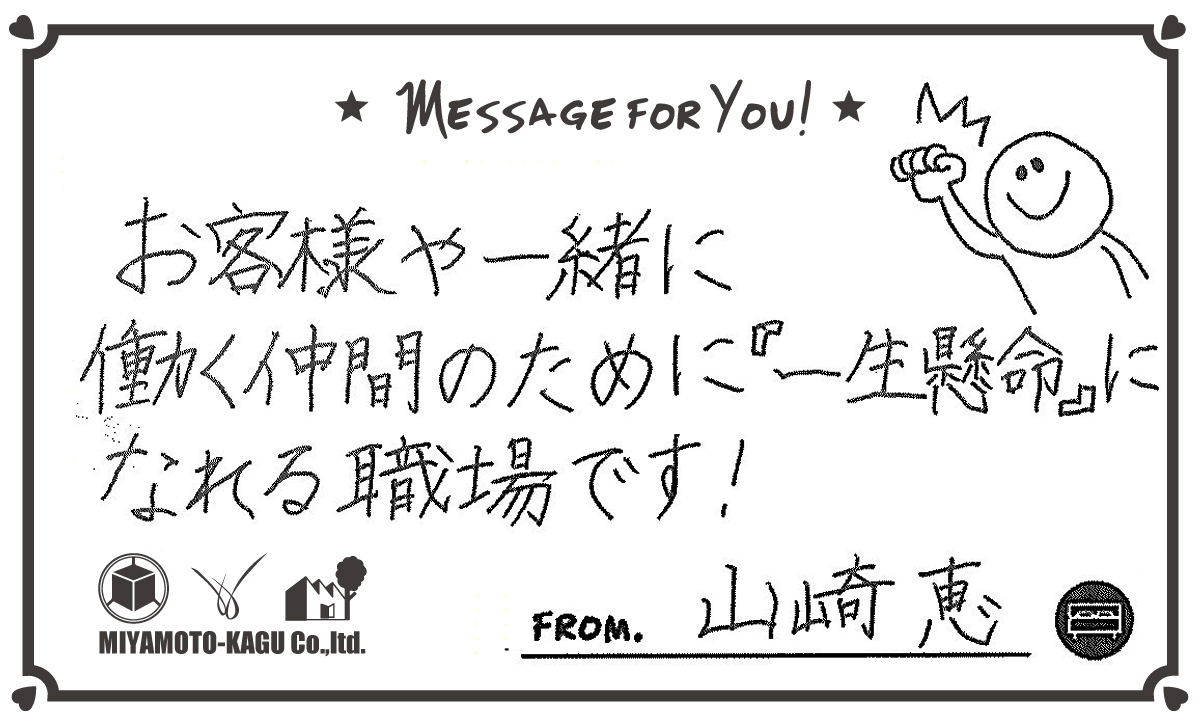 ★ MESSAGE FOR YOU! ★
お客様や一緒に
働く仲間のために『一生懸命』に
なれる職場です！
MIYAMOTO-KAGU Co.,ltd.
FROM. 山崎 恵